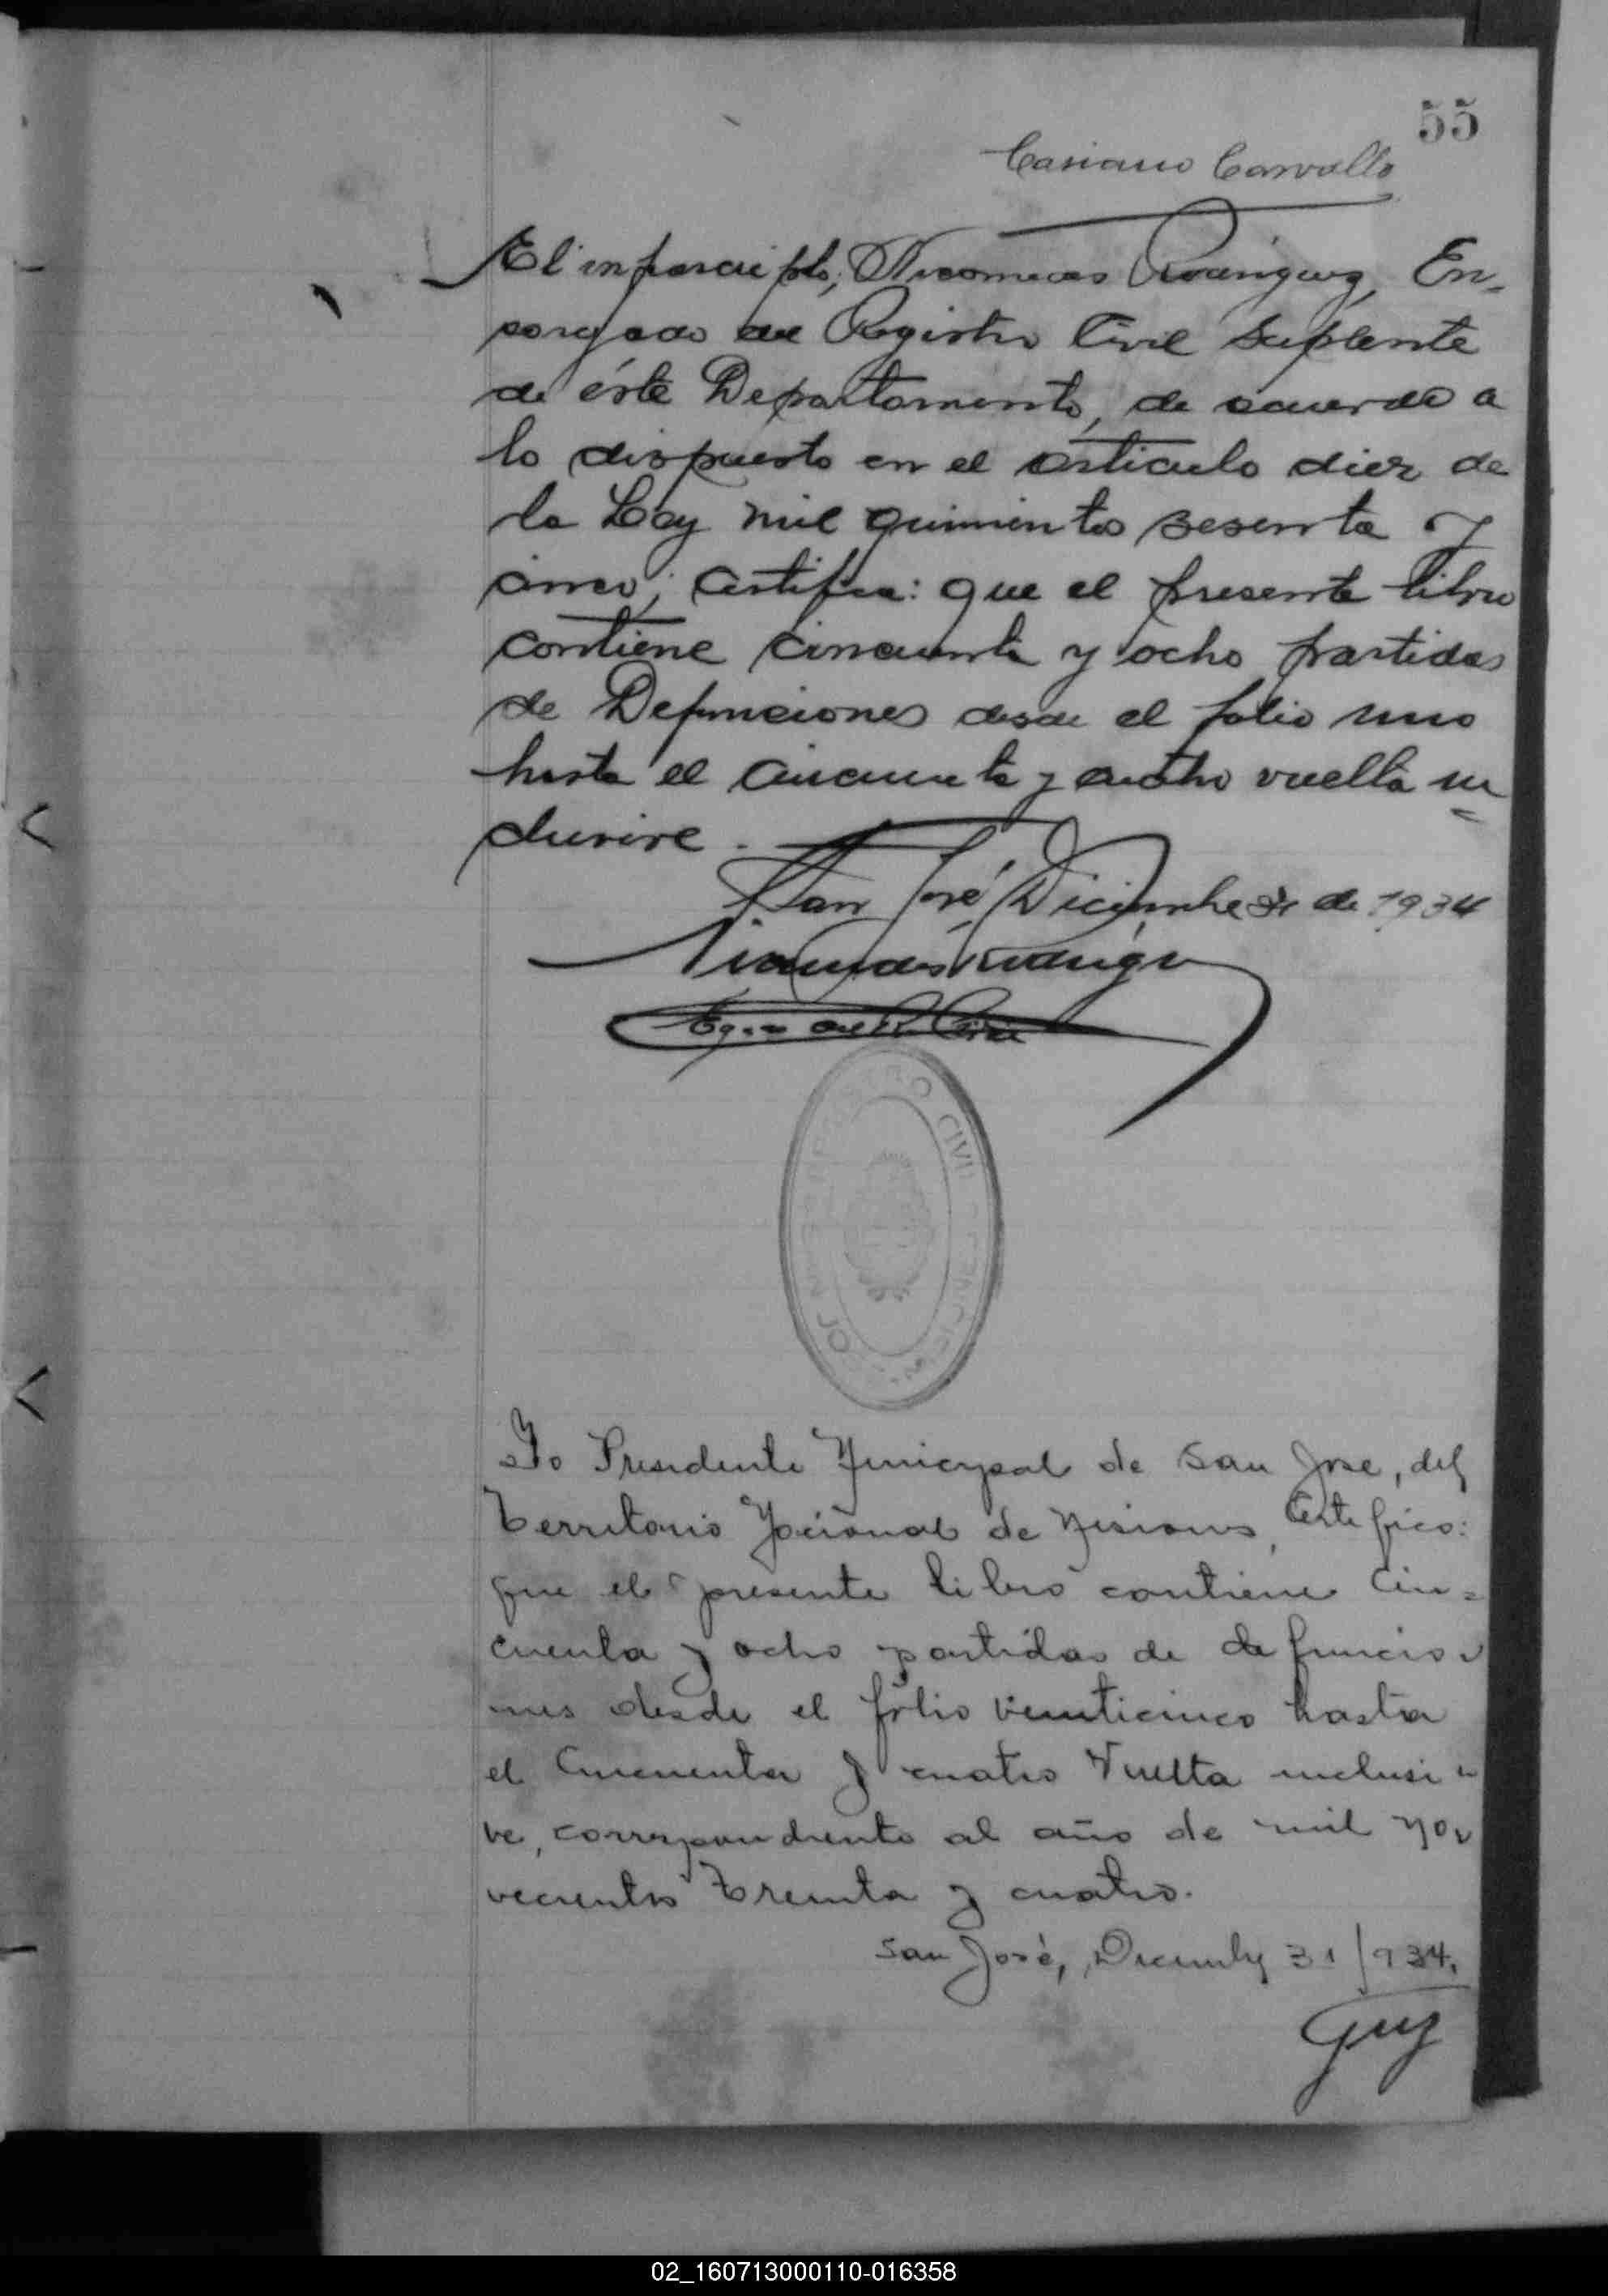 55
Casiano Carvallo
El infrascripto, Nicomedes Rodriguez, En-
cargado del Registro Civil Suplente
de éste Departamento, de acuerdo a
lo dispuesto en el artículo diez de
la Ley mil quinientos sesenta y
cinco; certifica: que el presente libro
contiene cincuenta y ocho partidas
de Defunciones desde el folio uno
hasta el cincuenta y cuatro vuelta in
clusive.
San José, Diciembre 31 de 1934
Nicomedes Rodrigu
Egdo del R. Civil
REGISTRO CIVIL
SAN JOSE
Yo Presidente Municipal de San Jose, del
Territorio Nacional de Misiones, Certifico:
que el presente libro contiene Cin=
cuenta y ocho partidas de defuncio
nes desde el folio veinticinco hasta
el Cincuenta y cuatro Vuelta inclusi
ve, correspondiente al año de mil no
vecientos treinta y cuatro.
San José, Diciembre 31/934.
02_160713000110-016358